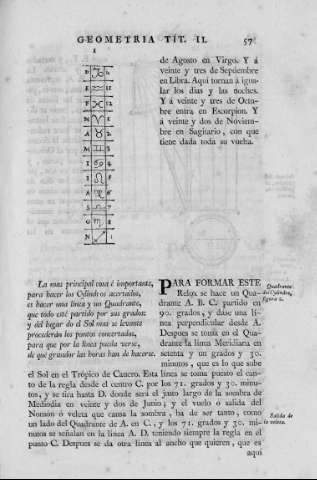 GEOMETRIA TÍT. II.
57
I
de Agosto en Virgo. Y á
veinte y tres de Septiembre
en Libra. Aquí tornan á igua-
lar los dias y las noches.
Y á veinte y tres de Octu-
bre entra en Escorpion. Y
á veinte y dos de Noviem-
bre en Sagitario, con que
tiene dada toda su vuelta.
La mas principal cosa é importante,
para hacer los Cylindros acertados,
es hacer una linea y un Quadrante,
que todo esté partido por sus grados:
y del lugar do el Sol mas se levante
procederán los puntos concertados,
para que por la linea pueda verse,
de que grandor las horas han de hacerse.
PARA FORMAR ESTE
Relox se hace un Qua-
drante A. B. C. partido en
90. grados, y dase una li-
nea perpendicular desde A.
Despues se toma en el Qua-
drante la linea Meridiana en
setenta y un grados y 30.
minutos, que es lo que sube
Quadrante
del Cylindro,
figura 2.
el Sol en el Trópico de Cancro. Esta linea se toma puesto el can-
to de la regla desde el centro C por los 71. grados y 30. minu-
tos, y se tira hasta D. donde será el justo largo de la sombra de
Mediodia en veinte y dos de Junio, y el vuelo ó salida del
Nomon ó veleta que causa la sombra, ha de ser tanto, como
un lado del Quadrante de A. en C., y los 71. grados y 30. mi-
nutos se señalan en la linea A. D. teniendo siempre la regla en el
punto C. Despues se da otra linea al ancho que quieren, que es
Salida de
la veleta.
aqui